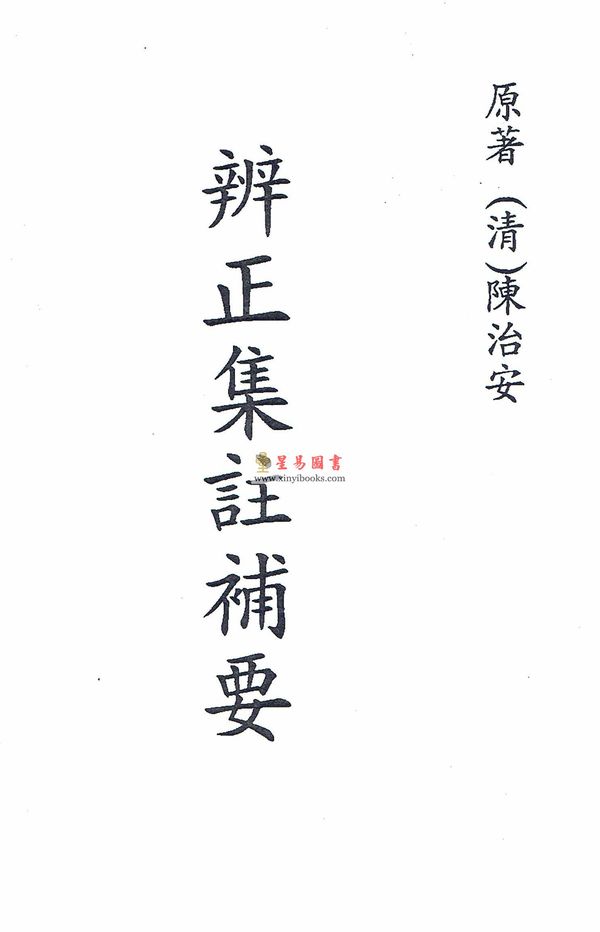 原著（清）陳治安
辨正集註補要
星易圖書
www.xinyibooks.com